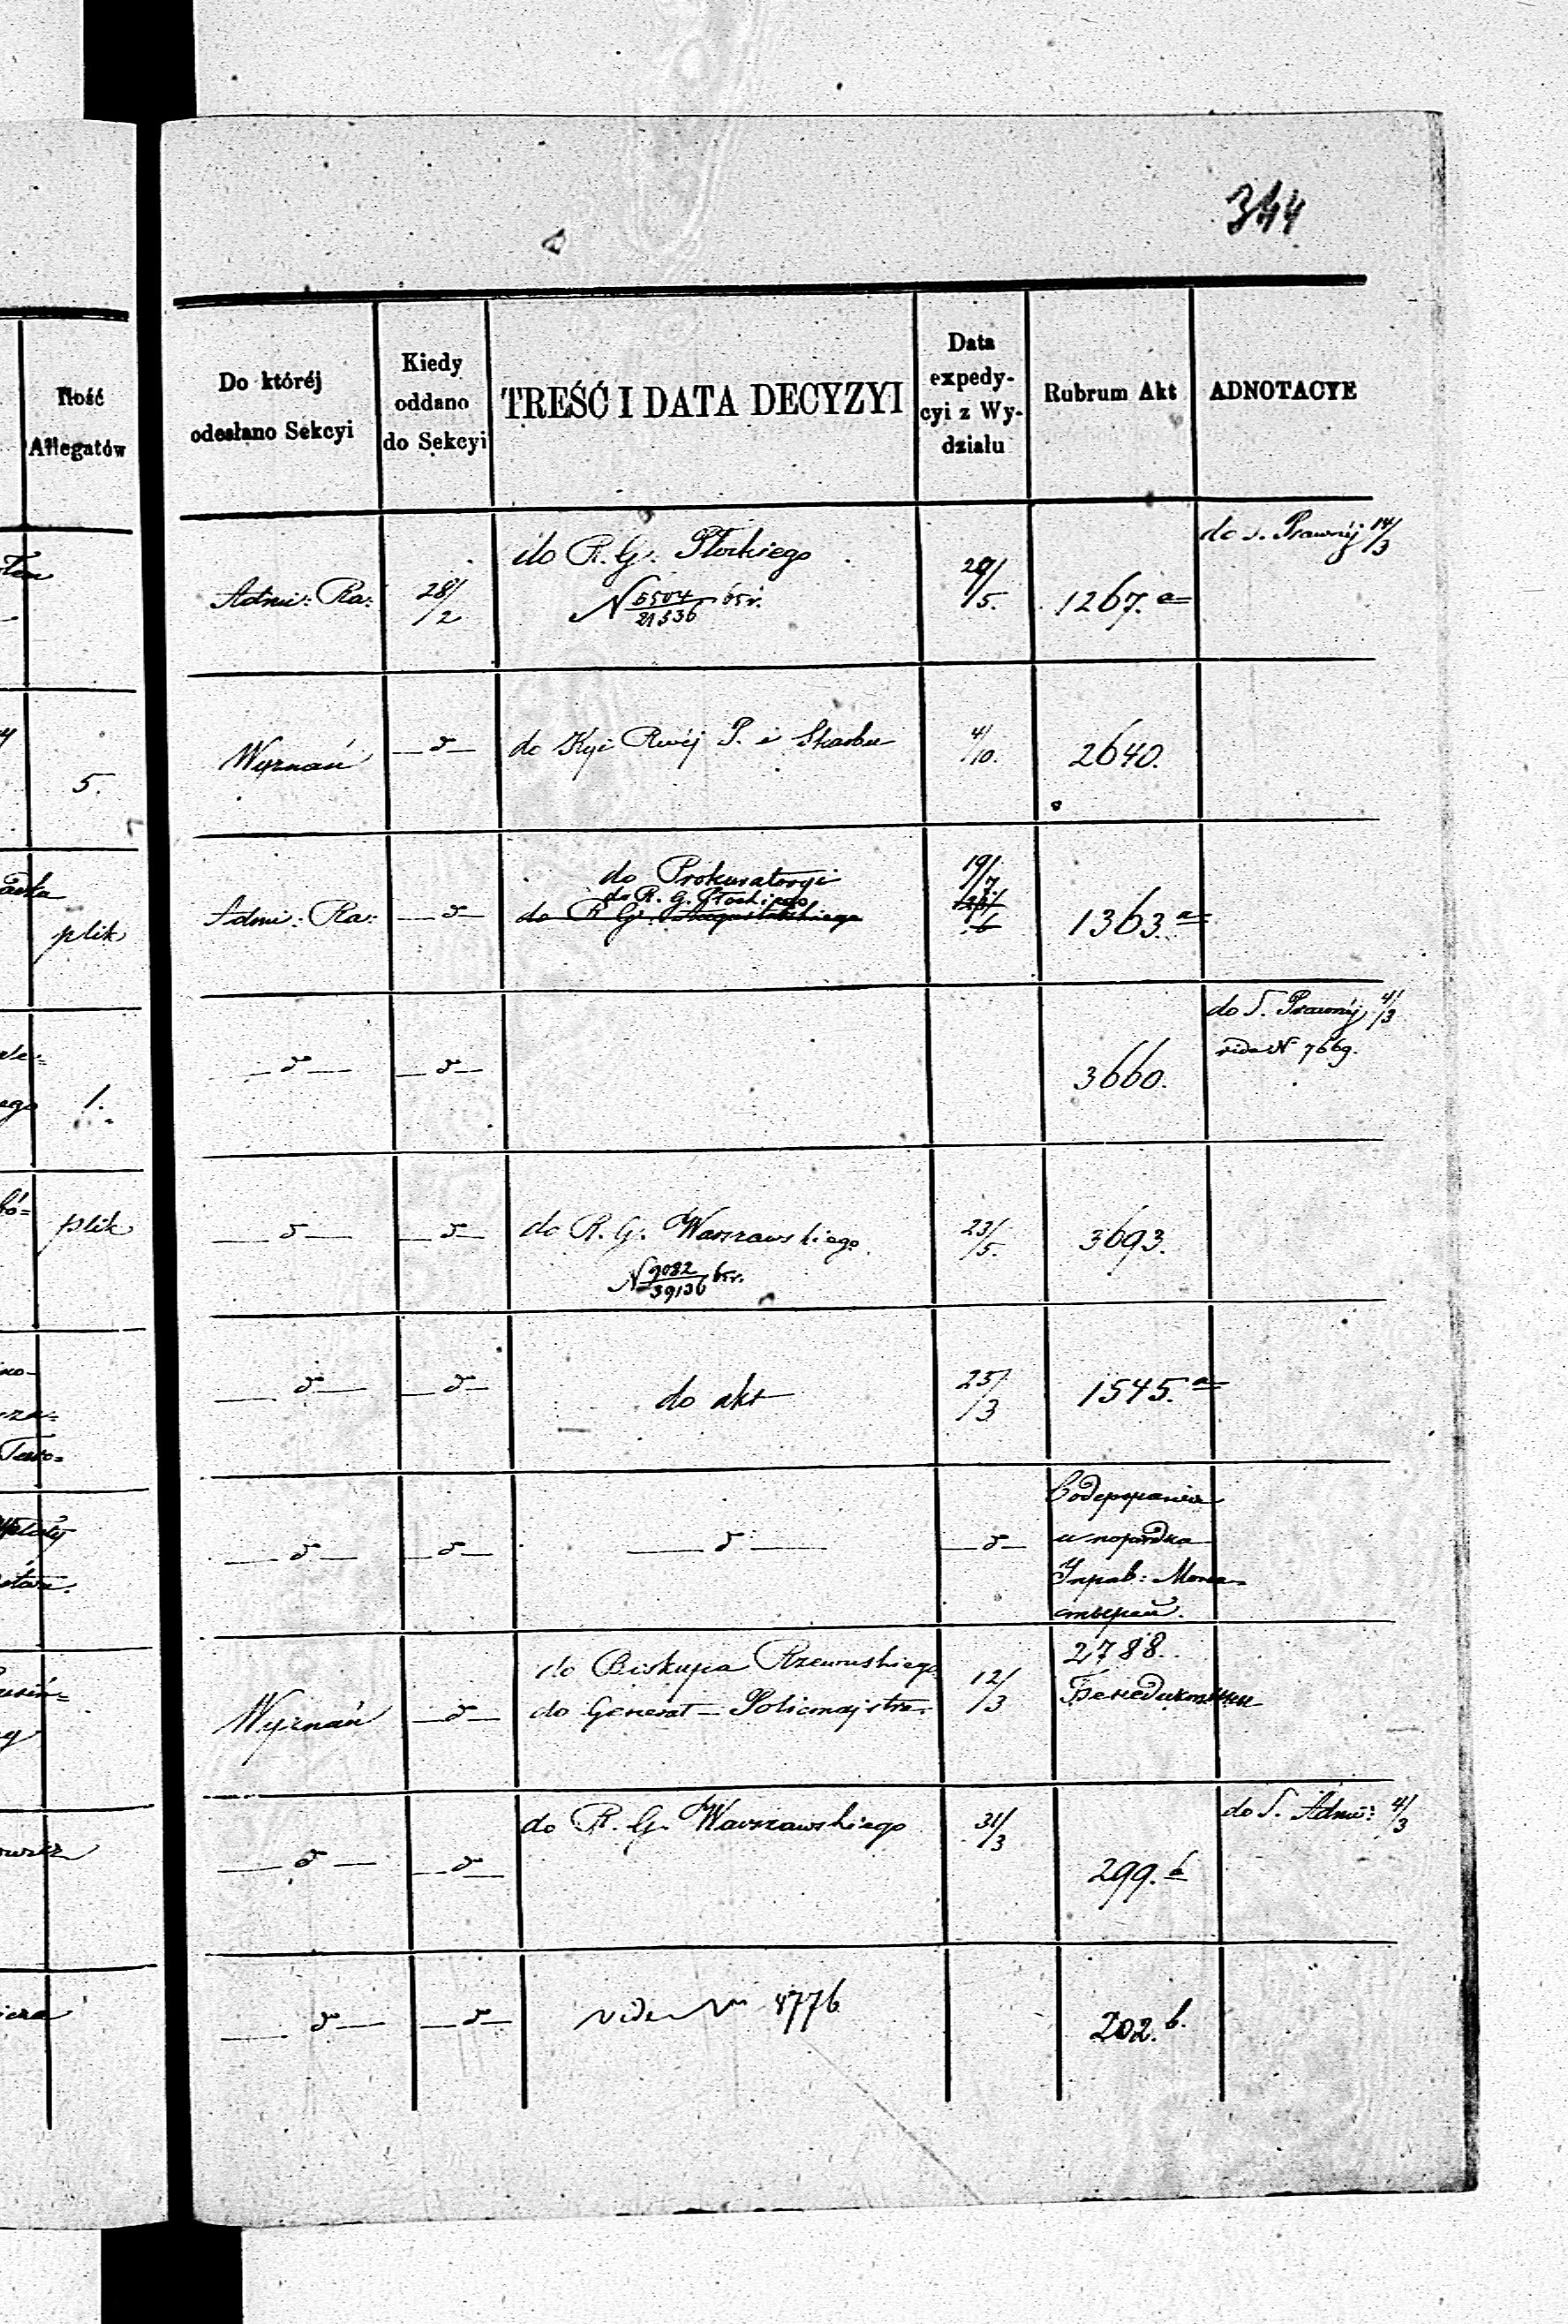 344
Ilość
Allegatów
Do któréj
odesłano Sekcyi
Kiedy
oddano
do Sekcyi
TREŚĆ I DATA DECYZYI
Data
expedy-
cyi z Wy-
działu
Rubrum Akt
ADNOTACYE
Admi: Ra:
28/2
do R. G. Płockiego
N 6504/21536 65 r.
/5.
1267. a
do S. Prawnéj 14/3
5.
Wyznań
— d —
do Kyi Rwéj P. i Skarbu
4/10.
2640.
plik
Admi: Ra:
— d —
do Prokuratoryi
do R. G. Płockiego
do R. G. Augustowskiego
19/7
1363. a
1.
— d —
— d —
3660.
do S. Prawnéj 4/3
vide N 7669.
plik
— d —
— d —
do R. G. Warszawskiego
N 9082/39136 65 r.
23/5.
3693.
— d —
— d —
do akt
25/3
1545. a
— d —
— d —
— d —
— d —
Содержанія
и порядка
Управ: Мона-
стырей.
Wyznań
— d —
do Biskupa Rzewuskiego
do Generał-Policmajstra
12/3
2788.
Бенедиктины
— d —
— d —
do R. G. Warszawskiego
31/3
299. b
do S. Admi: 4/3
— d —
— d —
vide N 4776
202. b.